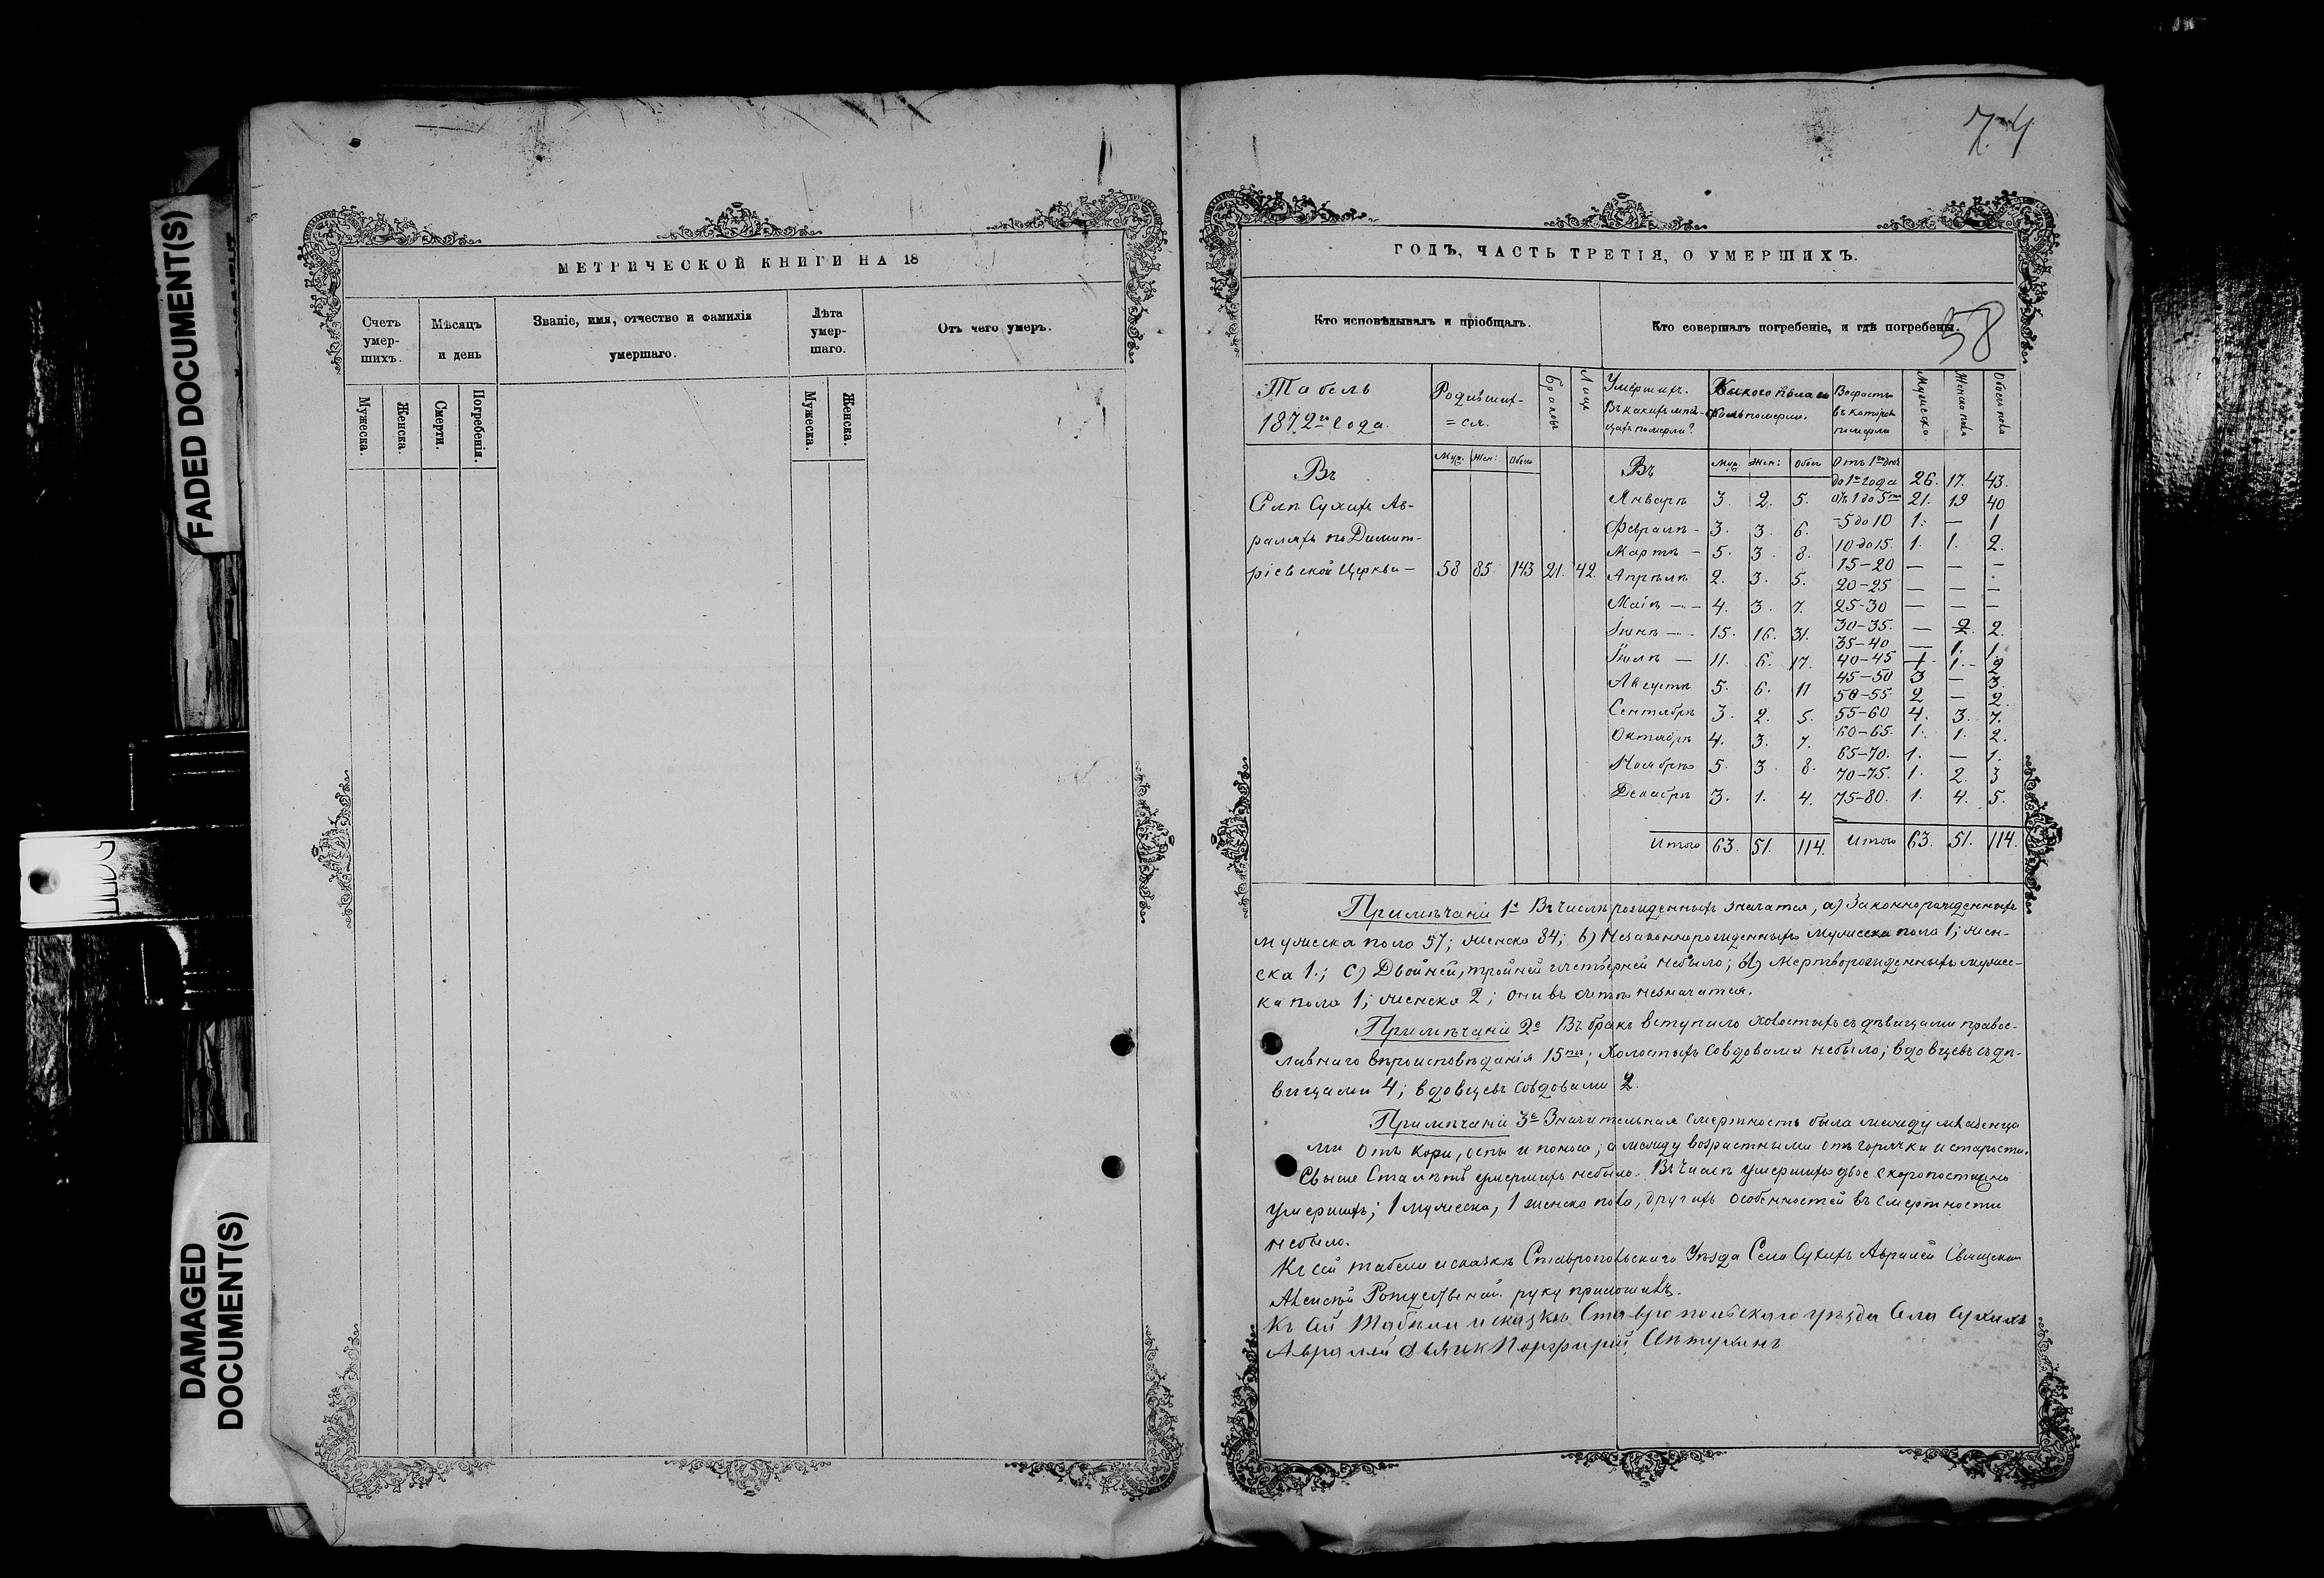 FADED DOCUMENT(S)
DAMAGED
DOCUMENT(S)
МЕТРИЧЕСКОЙ КНИГИ НА 18
Счетъ умер-шихъ.
Мѣсяцъ и день
Званіе, имя, отчество и фамилія умершаго.
Лѣта умер-шаго.
Отъ чего умеръ.
Мужеска.
Женска.
Смерти.
Погребенія.
Мужеска.
Женска.
74
ГОДЪ, ЧАСТЬ ТРЕТІЯ, О УМЕРШИХЪ.
Кто исповѣдывалъ и пріобщалъ.
Кто совершалъ погребеніе, и гдѣ погребены.
58
Табель 1872го года.
Родивших-=ся.
Браковъ
Лицъ
Умершихъ. Въ какихъ мѣся-цахъ померли?
Какого пола померли.
Возрастъ въ которомъ померли
Мужеска
Женска пола
Обоего пола
Муж. Жен: Обоего
Въ
Муж. Жен: Обоего
Селѣ Сухихъ Ав-
раляхъ по Димит-
ріевской Церкви — 58 85 143 21. 42.
Январѣ 3. 2. 5.
Февралѣ - 3. 3. 6.
Мартѣ - 5. 3. 8.
Апрѣлѣ 2. 3. 5.
Маіѣ - - 4. 3. 7.
Іюнѣ - - 15. 16. 31.
Іюлѣ — 11. 6. 17.
Августѣ 5. 6. 11
Сентябрѣ 3. 2. 5.
Октябрѣ 4. 3. 7.
Ноябрѣ 5. 3 8.
Декабрѣ 3. 1. 4.
Итого 63. 51. 114.
Отъ 1го дня до 1го года 26. 17. 43.
отъ 1 до 5ти 21. 19 40
-5 до 10 1. — 1
10 до 15. 1. 1. 2.
15-20 — — -
20-25 — — —
25-30 — — —
30-35. — 2. 2.
35-40 — 1. 1.
40-45 1. 1.- 2
45-50 3 — 3.
50-55. 2 — 2.
55-60 4. 3. 7.
60-65. 1. 1. 2.
65-70. 1. — 1.
70-75. 1. 2. 3
75-80. 1. 4. 5.
Итого 63. 51. 114.
Примѣчаніе 1е Въ числѣ рожденныхъ значатся, а) Законнорожденныхъ
мужеска пола 57; женска 84; b) Незаконнорожденныхъ мужеска пола 1; жен-
ска 1.; c) Двойней, тройней и четверней небыло; d) Мертворожденныхъ мужес-
ка пола 1; женска 2; они въ счетѣ незначатся.
Примѣчаніе 2е Въ бракъ вступило холостыхъ съ дѣвицами правос-
лавнаго вѣроисповѣданія 15ть; Холостыхъ совдовами небыло; вдовцевъ съ дѣ-
вицами 4; вдовцевъ совдовами 2.
Примѣчаніе 3е Значительная смертность была между младенца
ми отъ кори, оспы и поноса; а между возрастными отъ горячки и старости.
Свыше Ста лѣтъ умершихъ небыло. Въ числѣ умершихъ двое скоропостижно
умершихъ; 1 мужеска, 1 женска пола, другихъ особенностей въ смертности
небыло.
Къ сей табели и сказкѣ Ставропольскаго Уѣзда Села Сухихъ Авралей Священник
Алексѣй Рождественскій руку приложилъ.
Къ сей Табели и сказкѣ Ставропольскаго уѣзда Села Сухихъ
Авралей дьячик Порфирій